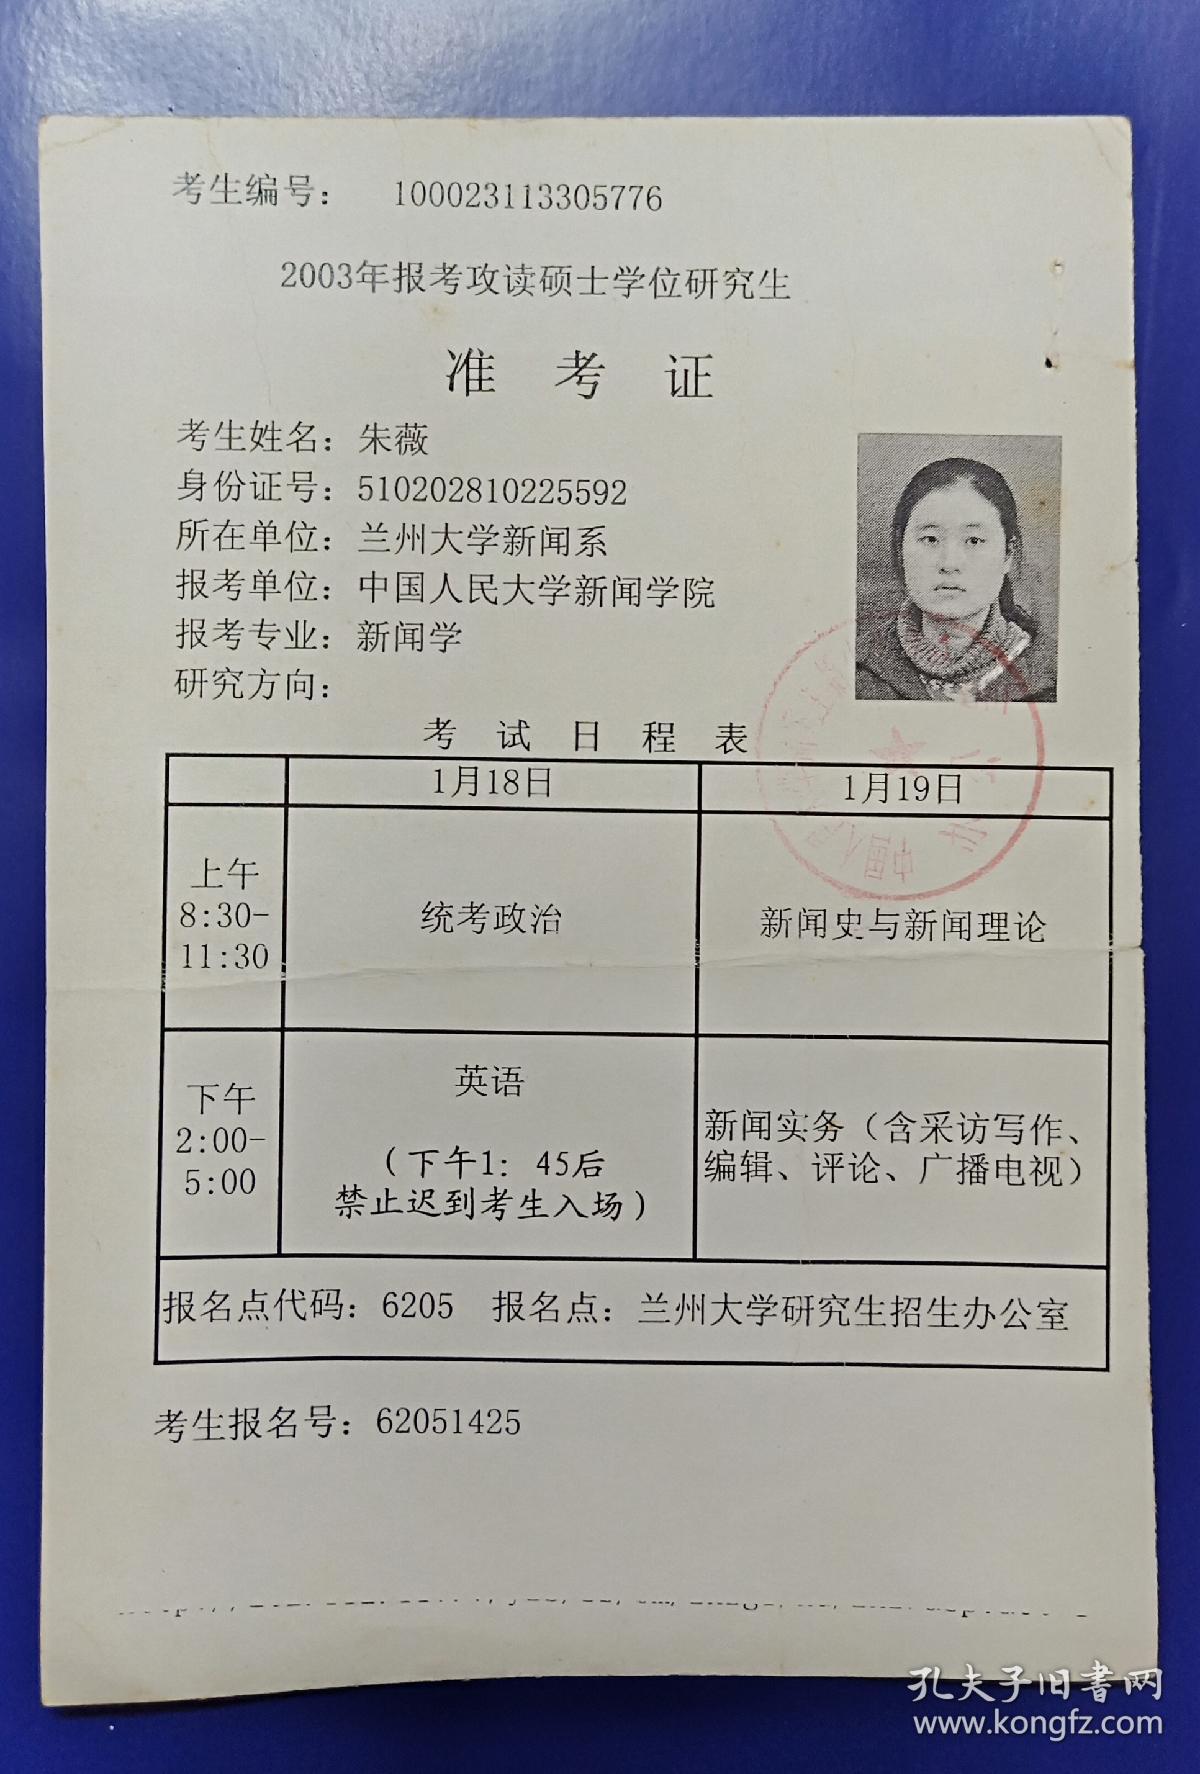 考生编号: 100023113305776
2003年报考攻读硕士学位研究生
准 考 证
考生姓名: 朱薇
身份证号: 510202810225592
所在单位: 兰州大学新闻系
报考单位: 中国人民大学新闻学院
报考专业: 新闻学
研究方向:
考 试 日 程 表
1月18日 1月19日
上午
8:30-
11:30
统考政治
新闻史与新闻理论
下午
2:00-
5:00
英语
(下午1: 45后
禁止迟到考生入场)
新闻实务（含采访写作、
编辑、评论、广播电视）
报名点代码: 6205 报名点: 兰州大学研究生招生办公室
考生报名号: 62051425
孔夫子旧书网
www.kongfz.com